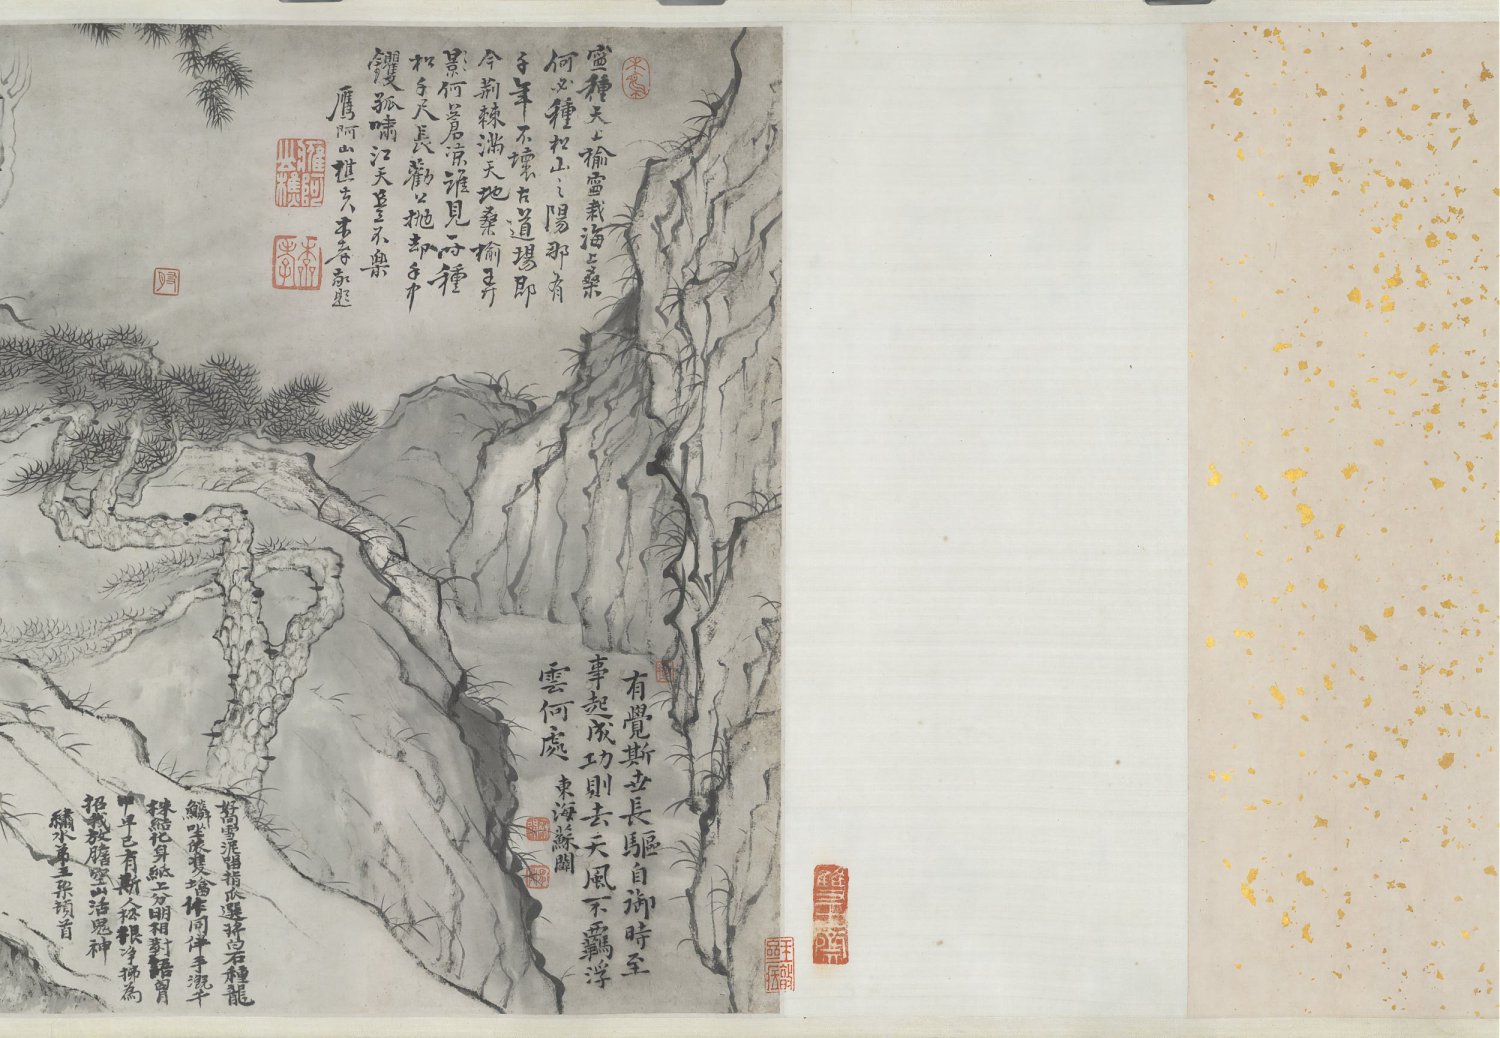 寧種天上榆寧栽海上桑
何必種松山之陽那有
千年不壞古道場即
今荊棘滿天地桑榆弄
影何蒼涼誰見所種
松千尺長勸公拋却手中
钁孤嘯江天豈不樂
鷹阿山樵本孝敬題
鷹阿山樵
本孝
有覺斯世長驅自御時至
事起成功則去天風不羈浮
雲何處
東海蘇闢
好向雪泥留指爪選將白石種龍
鱗坐雙作同伴手溉千
株結化身紙上分明相對語胸
中早已有斯人松根淨掃為
招我放膽空山活鬼神
繡水弟王槩頓首